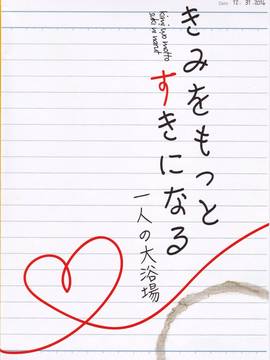 Date 12 . 31 . 2016
きみをもっと
kimi wo motto
suki ni naru
すきになる
一人の大浴場